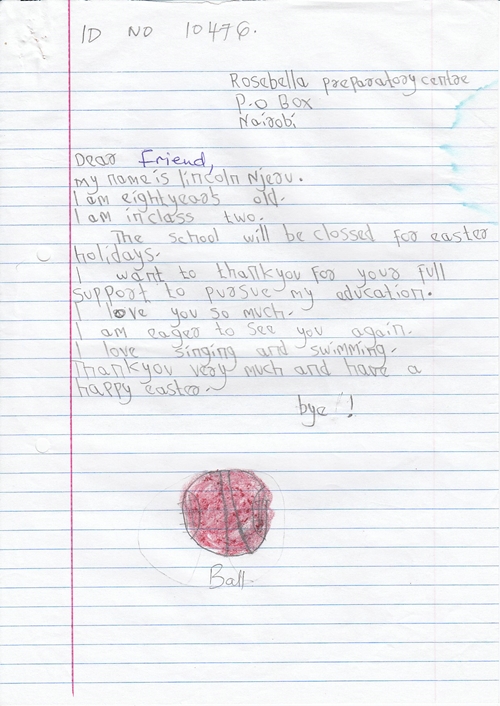 ID NO 10476.
Rosebella preparatory centre
P.O BOX
Nairobi
Dear Friend,
my name is lincoln Njeru.
I am eightyears old.
I am in class two.
The school will be clossed for easter
holidays.
I want to thankyou for your full
support to pursue my aducation.
I love you so much.
I am eager to see you again.
I love singing and swimming.
Thankyou very much and have a
happy easter.
bye !
Ball